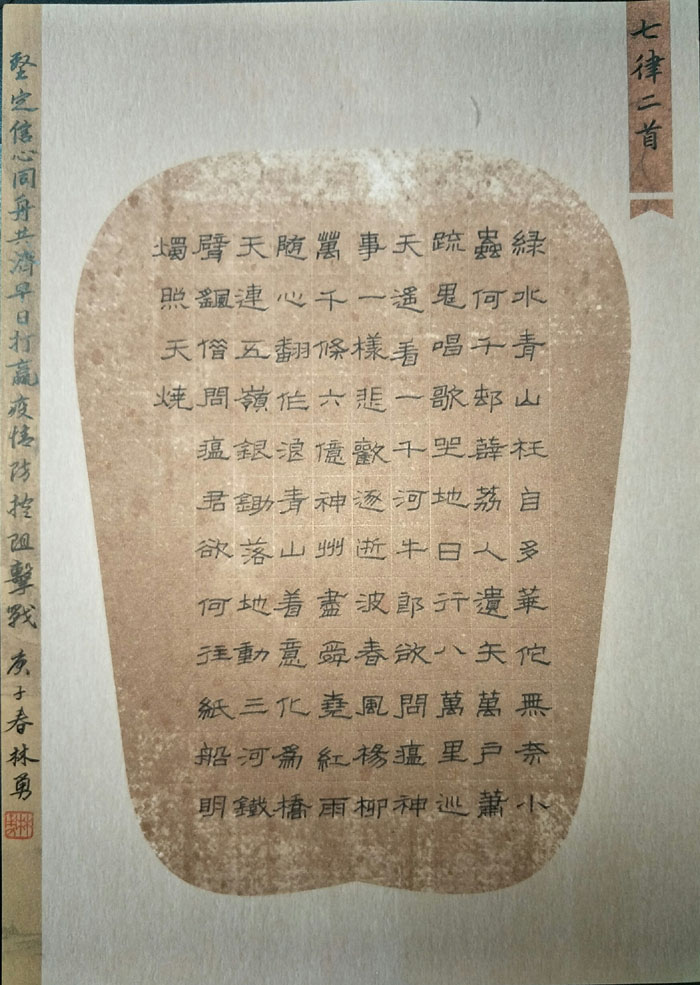 七律二首
緑水青山枉自多華佗無奈小
蟲何千邨薜荔人遺矢萬戶蕭
疏鬼唱歌坐地日行八萬里巡
天遥看一千河牛郎欲問瘟神
事一樣悲歡逐逝波春風楊柳
萬千條六億神州盡舜堯紅雨
随心翻作浪青山着意化爲橋
天連五嶺銀鋤落地動三河鐵
臂颻借問瘟君欲何往紙船明
燭照天燒
堅定信心同舟共濟早日打贏疫情防控阻擊戰 庚子春林勇